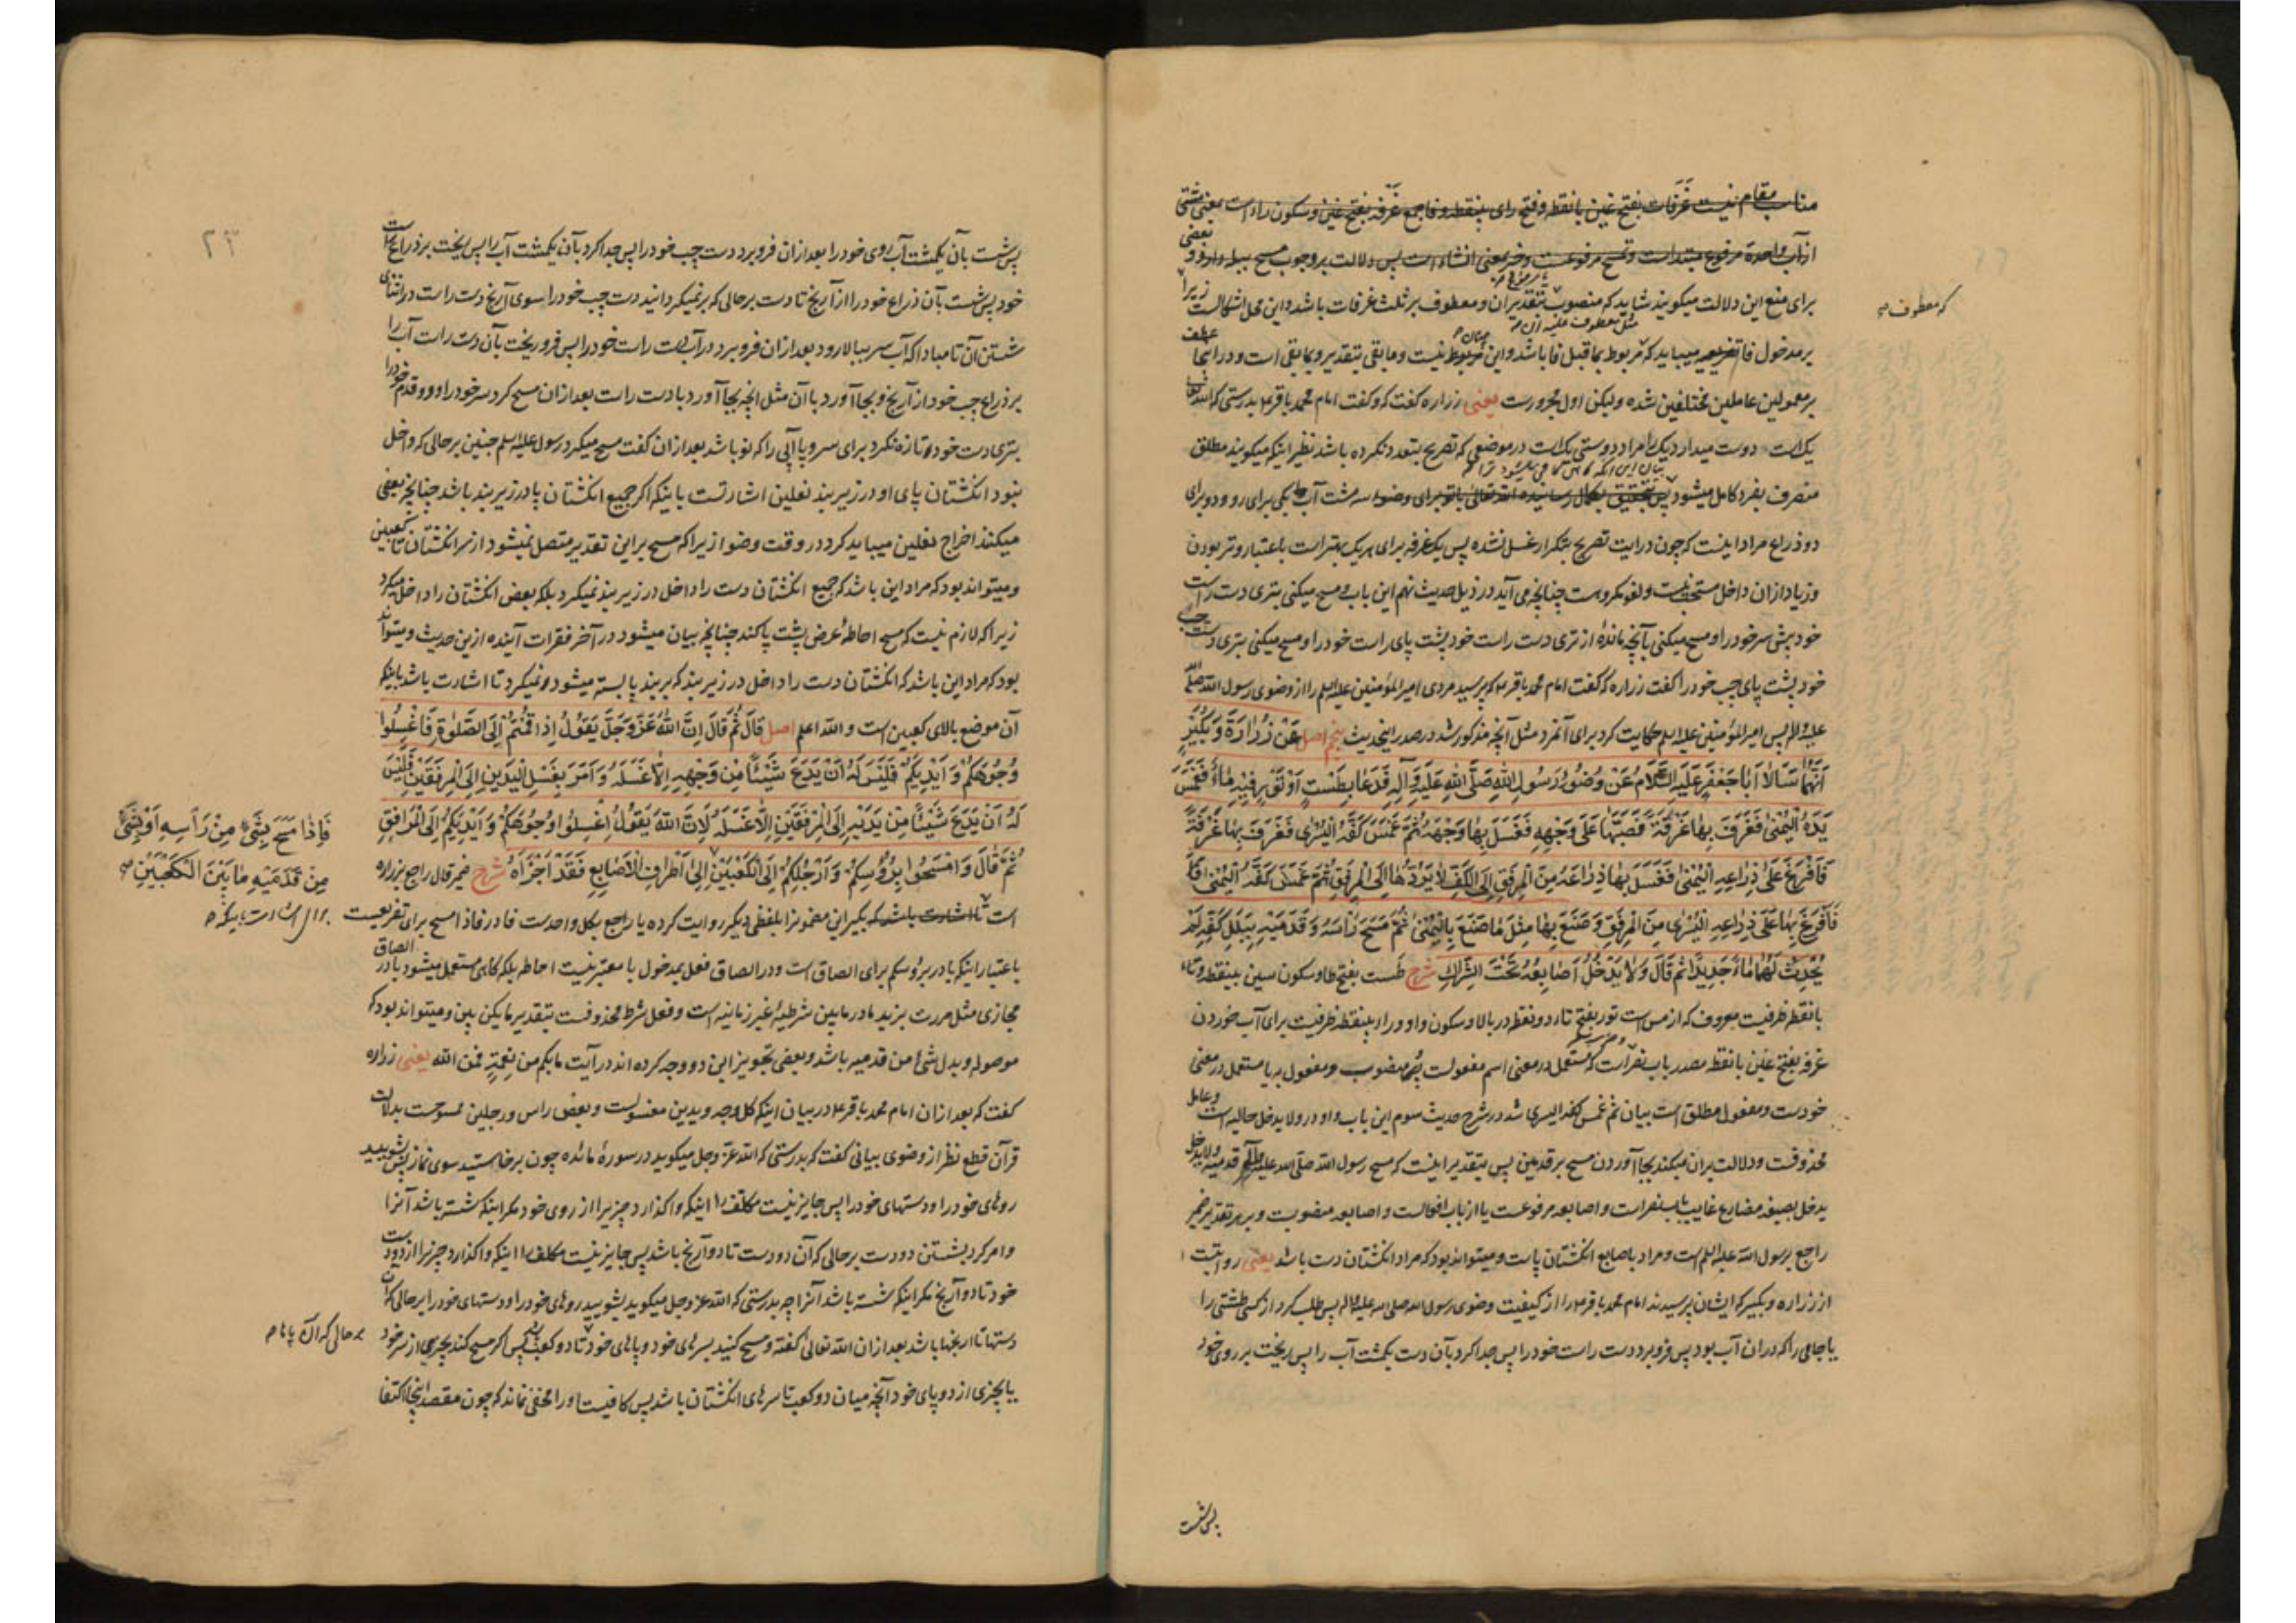 مناسب مقام نیست غَرَفَات بفتح غین با نقطه و فتح رای بینقطه و فا جمع غَرْفَه بفتح غین و سکون راء است بمعنی مشتی
از آب واحدة مرفوع مبتداست و تمسح مرفوعست و خبر بمعنی انشاء است پس دلالت بر وجوب مسح بیله دارد و بعضی
برای منع این دلالت میگویند شاید که منصوب بتقدیر ان و معطوف بر ثلث غرفات باشد و این محل اشکالست زیرا
که معطوف
بر مدخول فا تفریعیه میباید که مربوط بما قبل فا باشد و این مربوط نیست و ما بقی بتقدیر و بما بقی است و در اینجا عطف
بر معمولین عاملین مختلفین شده ولیکن اول مجرورست یعنی زراره گفت که و گفت امام محمد باقر ع بدرستی که الله تعالی
یکتاست دوست میدارد یک را مراد دوستی یکتاست در موضعی که تصریح بتعدد نکرده باشد نظیر اینکه میگویند مطلق
منصرف بفرد کامل میشود پس بتحقیق بکمال رسانیده الله تعالی باتو برای وضوء سه مشت آب یکی برای رو و دو برای
دو ذراع مراد اینست که چون در آیت تصریح بتکرار غسل نشده پس یک غرفه برای هر یک بهتر است باعتبار وتر بودن
و زیاد از ان داخل مستحب نیست و لغو مکروست چنانچه می آید در ذیل حدیث نهم این باب و مسح میکنی بتری دست راست
خود پیش سر خود را و مسح میکنی بآنچه مانده از تری دست راست خود پشت پای راست خود را و مسح میکنی بتری دست چپ
خود پشت پای چپ خود را گفت زراره که گفت امام محمد باقر ع که پرسید مردی امیر المؤمنین علیه السلم را از وضوی رسول الله صلی الله
علیه و آله پس امیر المؤمنین علیه السلم حکایت کرد برای آنمرد مثل آنچه مذکور شد در صدر اینحدیث پنجم اصل عَنْ زُرَارَةَ وَ بُكَيْرٍ
أَنَّهُمَا سَأَلَا أَبَا جَعْفَرٍ عَلَيْهِ السَّلَامُ عَنْ وُضُوءِ رَسُولِ اللهِ صَلَّى اللهُ عَلَيْهِ وَ آلِهِ فَدَعَا بِطَسْتٍ أَوْ تَوْرٍ فِيهِ مَاءٌ فَغَمَسَ
يَدَهُ الْيُمْنَى فَغَرَفَ بِهَا غَرْفَةً فَصَبَّهَا عَلَى وَجْهِهِ فَغَسَلَ بِهَا وَجْهَهُ ثُمَّ غَمَسَ كَفَّهُ الْيُسْرَى فَغَرَفَ بِهَا غَرْفَةً
فَأَفْرَغَ عَلَى ذِرَاعِهِ الْيُمْنَى فَغَسَلَ بِهَا ذِرَاعَهُ مِنَ الْمِرْفَقِ إِلَى الْكَفِّ لَا يَرُدُّهَا إِلَى الْمِرْفَقِ ثُمَّ غَمَسَ كَفَّهُ الْيُمْنَى
فَأَفْرَغَ بِهَا عَلَى ذِرَاعِهِ الْيُسْرَى مِنَ الْمِرْفَقِ وَ صَنَعَ بِهَا مِثْلَ مَا صَنَعَ بِالْيُمْنَى ثُمَّ مَسَحَ رَأْسَهُ وَ قَدَمَيْهِ بِبَلَلِ كَفِّهِ لَمْ
يُحْدِثْ لَهُمَا مَاءً جَدِيدًا ثُمَّ قَالَ وَ لَا يُدْخِلُ أَصَابِعَهُ تَحْتَ الشِّرَاكِ شرح طَست بفتح طا و سکون سین بینقطه و تاء
با نقطه ظرفیست معروف که از مس است تور بفتح تاء دو نقطه در بالا و سکون واو و راء بینقطه ظرفیست برای آب خوردن
غرفه بفتح غین با نقطه مصدر باب نصر است که مستعمل در معنی اسم مفعولست پس منصوب و مفعول به یا مستعمل در معنی
خودست و مفعول مطلق است بیان ثم غمس کفه الیسری شد در شرح حدیث سوم این باب واو در ولا یدخل حالیه است و عامل
محذوفست و دلالت بران میکند بجا آوردن مسح بر قدمین پس بتقدیر اینست که مسح رسول الله صلی الله علیه و آله قدمیه ولا یدخل
یدخل بصیغه مضارع غایب باب نصر است و اصابعه مرفوعست یا از باب افعالست و اصابعه منصوبست و بر هر تقدیر ضمیر
راجع برسول الله علیه السلم است و مراد باصابع انگشتان پاست و میتواند بود که مراد انگشتان دست باشد یعنی روایتست
از زراره و بکیر که ایشان پرسیدند امام محمد باقر ع را از کیفیت وضوی رسول الله صلی الله علیه و آله پس طلب کرد از کسی طشتی را
یا جامی را که دران آب بود پس فرو برد دست راست خود را پس جدا کرد بآن دست یکمشت آب را پس ریخت بر روی خود
پس شست
۲۳
پس شست بآن یکمشت آب روی خود را بعد از ان فرو برد دست چپ خود را پس جدا کرد بآن یکمشت آب را پس ریخت بر ذراع راست
خود پس شست بآن ذراع خود را از آرنج تا دست بر حالی که برنمیگردانید دست چپ خود را سوی آرنج دست راست در اثنای
شستن آن تا مبادا که آب سر ببالا رود بعد از ان فرو برد در آب دست راست خود را پس فرو ریخت بآن دست راست آب را
بر ذراع چپ خود از آرنج و بجا آورد باآن مثل انچه بجا آورد با دست راست بعد از ان مسح کرد سر خود را و دو قدم خود را
بتری دست خود و تازه نکرد برای سر و پا آبی را که نو باشد بعد از ان گفت مسح میکرد رسول علیه السلم چنین بر حالی که داخل
نبود انگشتان پای او در زیر بند نعلین اشارتست باینکه اگر جمیع انگشتان پا در زیر بند باشد چنانچه بعضی
میکنند اخراج نعلین میباید کرد در وقت وضو از یراکه مسح براین تقدیر متصل نمیشود از سر انگشتان تا کعبین
و میتواند بود که مراد این باشد که جمیع انگشتان دست را داخل در زیر بند نمیکرد بلکه بعض انگشتان را داخل میکرد
زیرا که لازم نیست که مسح احاطهٔ عرض پشت پا کند چنانچه بیان میشود در آخر فقرات آینده از ین حدیث و میتواند
بود که مراد این باشد که انگشتان دست را داخل در زیر بند که بر بند پا بسته میشود نمیکرد تا اشارت باشد باینکه
آن موضع بالای کعبین است و الله اعلم اصل قَالَ ثُمَّ قَالَ إِنَّ اللهَ عَزَّ وَ جَلَّ يَقُولُ إِذَا قُمْتُمْ إِلَى الصَّلٰوةِ فَاغْسِلُوا
وُجُوهَكُمْ وَ أَيْدِيَكُمْ فَلَيْسَ لَهُ أَنْ يَدَعَ شَيْئًا مِنْ وَجْهِهِ إِلَّا غَسَلَهُ وَ أَمَرَ بِغَسْلِ الْيَدَيْنِ إِلَى الْمِرْفَقَيْنِ فَلَيْسَ
لَهُ أَنْ يَدَعَ شَيْئًا مِنْ يَدَيْهِ إِلَى الْمِرْفَقَيْنِ إِلَّا غَسَلَهُ لِأَنَّ اللهَ يَقُولُ اغْسِلُوا وُجُوهَكُمْ وَ أَيْدِيَكُمْ إِلَى الْمَرَافِقِ
ثُمَّ قَالَ وَ امْسَحُوا بِرُؤُسِكُمْ وَ أَرْجُلَكُمْ إِلَى الْكَعْبَيْنِ إِلَى أَطْرَافِ الْأَصَابِعِ فَقَدْ أَجْزَأَهُ شرح ضمیر قال راجع بزراره
فَإِذَا مَسَحَ بِشَيْءٍ مِنْ رَأْسِهِ أَوْ بِشَيْءٍ
مِنْ قَدَمَيْهِ مَا بَيْنَ الْكَعْبَيْنِ
است تا اشارت باشد که بکیر این مضمونرا بلفظی دیگر روایت کرده یا راجع بکل واحدست فا در فاذا مسح برای تفریعست
باعتبار اینکه با در برؤسکم برای الصاق است و در الصاق فعل بمدخول با معتبر نیست احاطه بلکه گاهی مستعمل میشود با در الصاق
مجازی مثل مررت بزید ما در ما بین شرطیهٔ غیر زمانیه است و فعل شرط محذوفست بتقدیر ما یکن بین و میتواند بود که
موصوله و بدل شئ من قدمیه باشد و بعضی تجویز این دو وجه کرده اند در آیت ما بکم من نِعمَةٍ فمن الله یعنی زراره
گفت که بعد از ان امام محمد باقر ع در بیان اینکه کل وجه و یدین مغسولست و بعض راس و رجلین ممسوحست بدلالت
قرآن قطع نظر از وضوی بیانی گفت که بدرستی که الله عزّ و جل میگوید در سورهٔ مائده چون برخاستید سوی نماز پس بشویید
روهای خود را و دستهای خود را پس جایز نیست مکلف را اینکه واگذارد چیزیرا از روی خود مگر اینکه شسته باشد آنرا
و امر کرد بشستن دو دست بر حالی که آن دو دست تا دو آرنج باشد پس جایز نیست مکلف را اینکه واگذارد چیزیرا از دو دست
خود تا دو آرنج مگر اینکه شسته باشد آنرا چه بدرستی که الله عز و جل میگوید بشویید روهای خود را و دستهای خود را بر حالی که آن
دستها تا آرنجها باشد بعد از ان الله تعالی گفته و مسح کنید بسرهای خود و پاهای خود تا دو کعب پس اگر مسح کند بچیزی از سر خود
بر حالی که آن پاها
یا بچیزی از دو پای خود آنچه میان دو کعب تا سرهای انگشتان باشد پس کافیست او را مخفی نماند که چون مقصد اینجا اکتفا